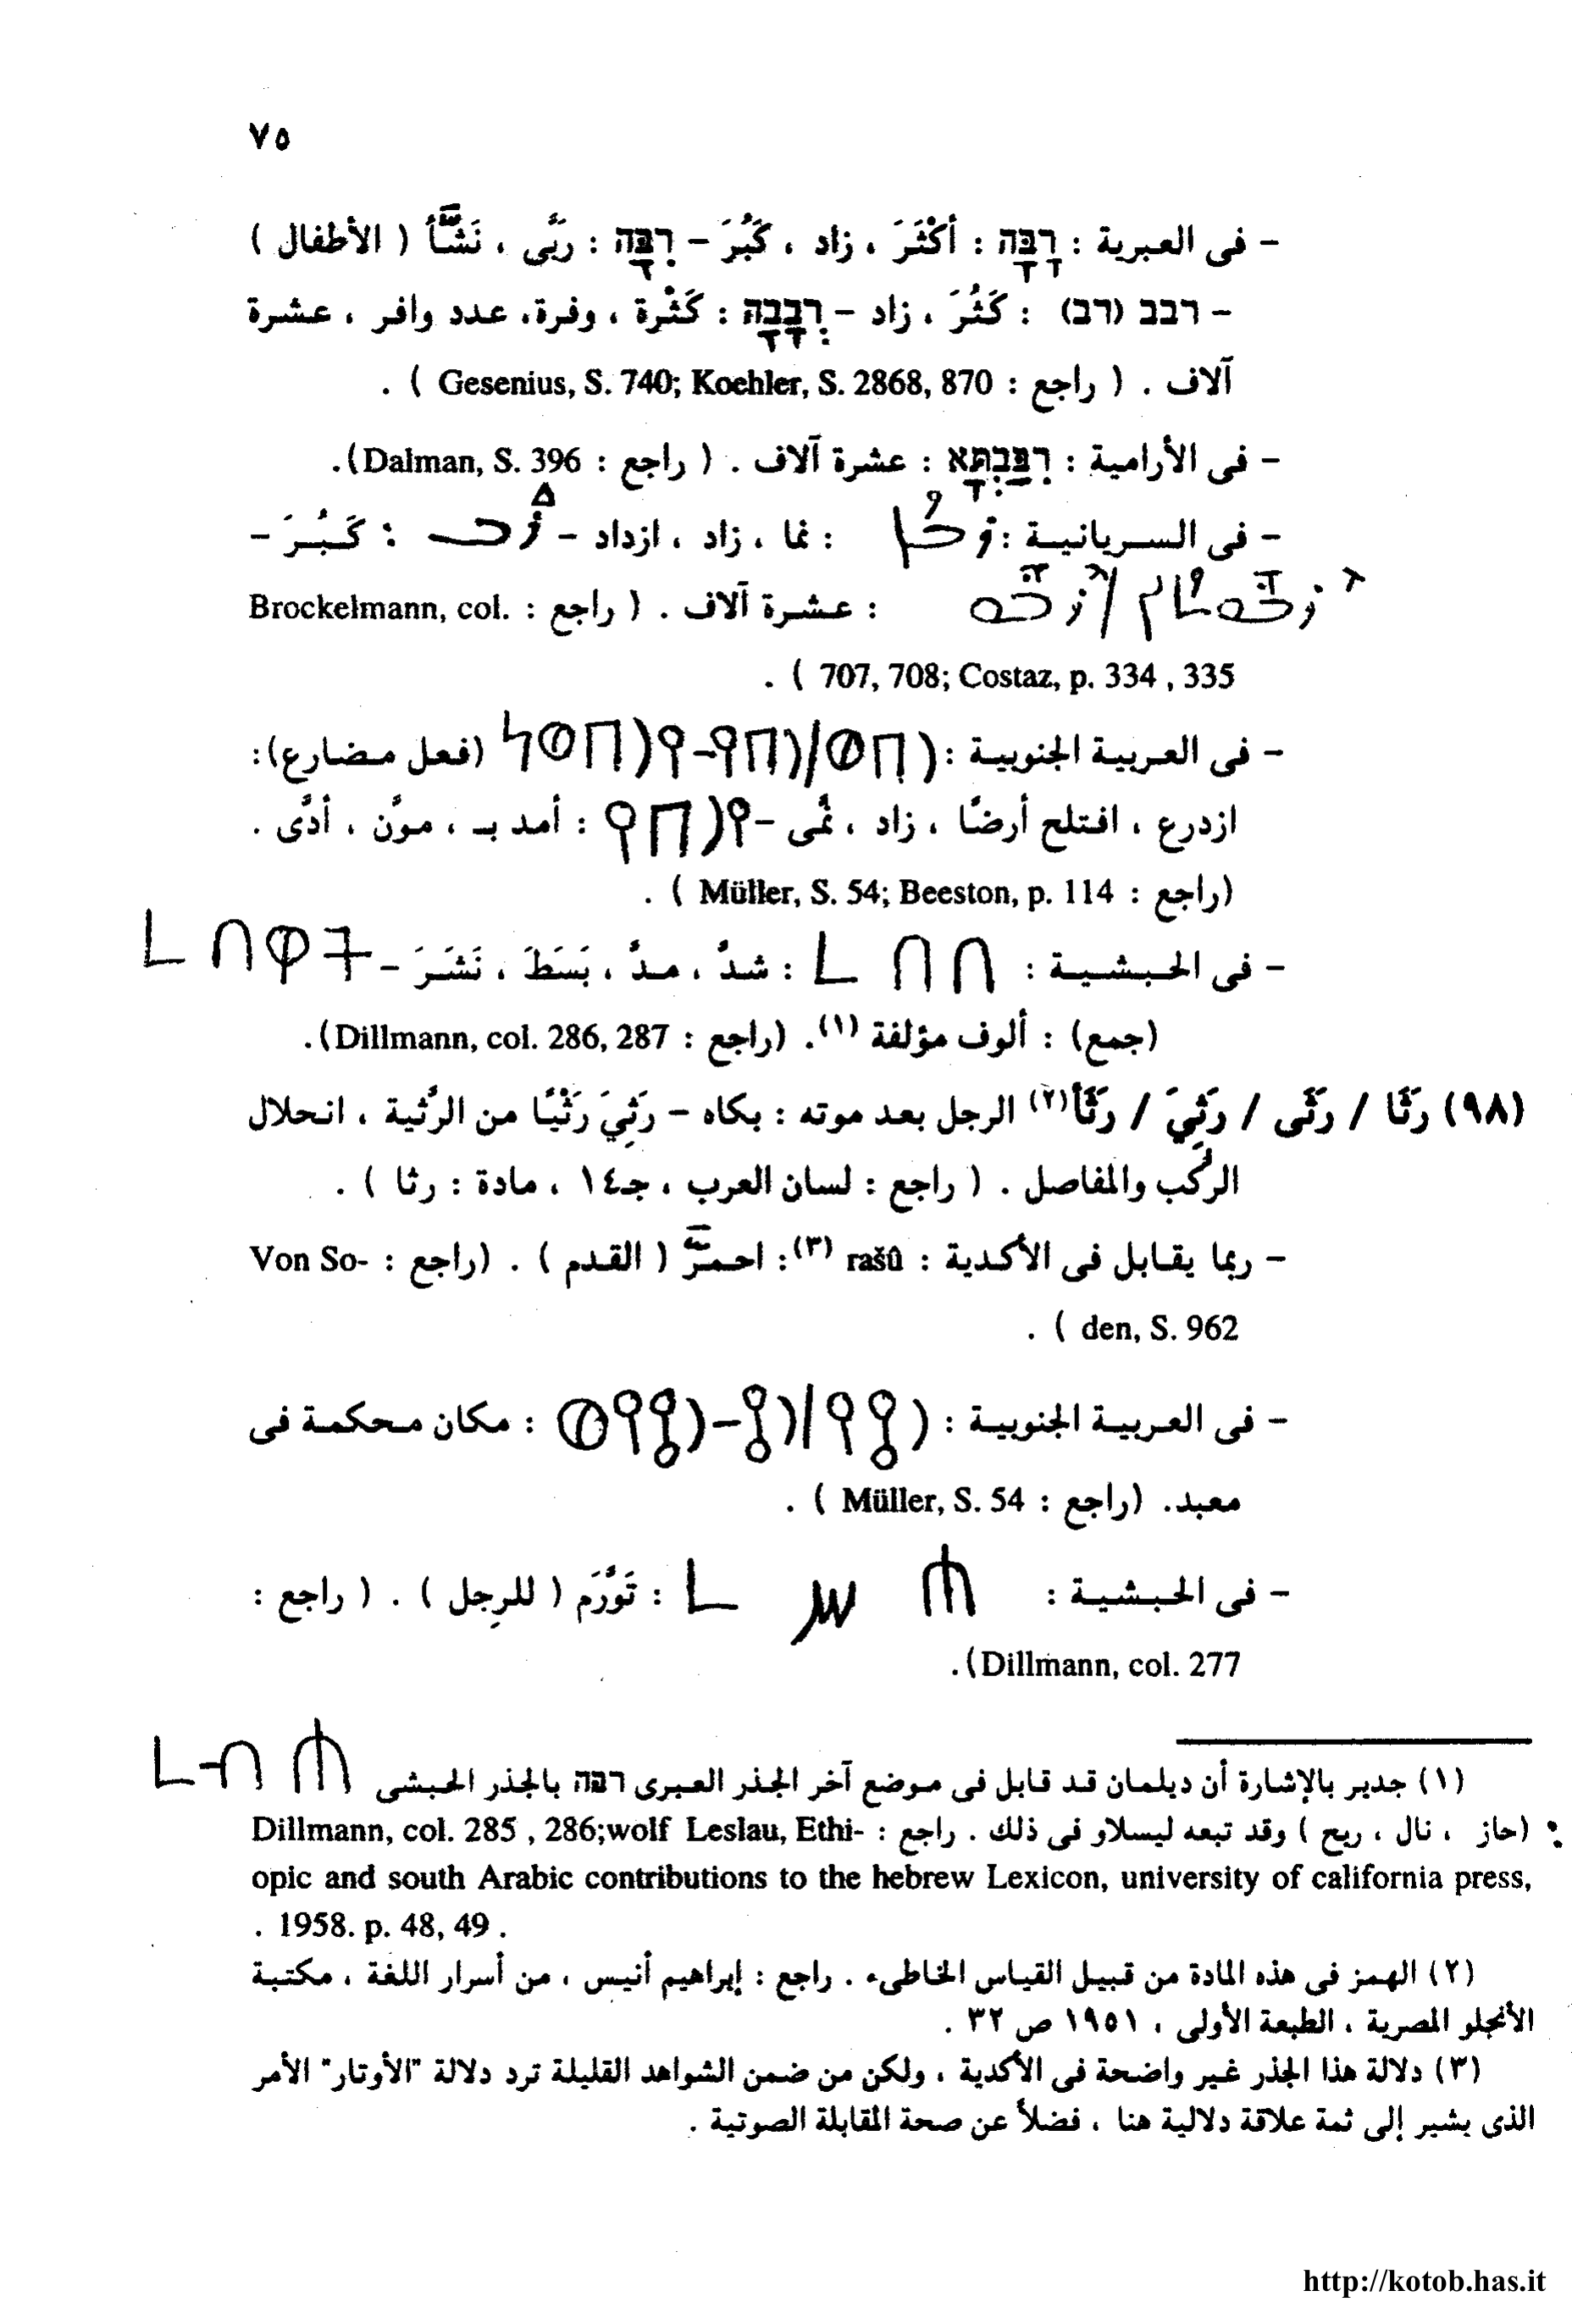 ٧٥
- فى العبرية : רָבָּה : أكْثَرَ ، زاد ، كَبُرَ - רִבָּה : ربَّى ، نَشَّأ ( الأطفال )
- רבב (רב) : كَثُرَ ، زاد - רְבָבָה : كَثْرة ، وفرة، عدد وافر ، عشرة
آلاف . ( راجع : Gesenius, S. 740; Koehler, S. 2868, 870 ) .
- فى الأرامية : רִבַּבְתָּא : عشرة آلاف . ( راجع : Dalman, S. 396).
- فى السريانية : : نما ، زاد ، ازداد - : كَبُرَ -
: عشرة آلاف . ( راجع : Brockelmann, col.
707, 708; Costaz, p. 334 , 335 ) .
- فى العربية الجنوبية : (فعل مضارع):
ازدرع ، افتلح أرضًا ، زاد ، نمَّى - 𐩧𐩨𐩺 : أمد بـ ، موَّن ، أدَّى .
(راجع : Müller, S. 54; Beeston, p. 114 ) .
- فى الحبشية : ረበበ : شدَّ ، مدَّ ، بَسَطَ ، نَشَرَ -
(جمع) : ألوف مؤلفة (١). (راجع : Dillmann, col. 286, 287).
(٩٨) رثَا / رثَى / رَثِيَ / رثَأ(٢) الرجل بعد موته : بكاه - رَثِيَ رَثْيًا من الرَّثية ، انحلال
الرُكَب والمفاصل . ( راجع : لسان العرب ، جـ١٤ ، مادة : رثا ) .
- ربما يقابل فى الأكدية : rašû (٣): احمرَّ ( القدم ) . (راجع : Von So-
den, S. 962 ) .
- فى العربية الجنوبية : : مكان محكمة فى
معبد. (راجع : Müller, S. 54 ) .
- فى الحبشية : : تَوَرَّمَ ( للرِجل ) . ( راجع :
Dillmann, col. 277).
(١) جدير بالإشارة أن ديلمان قد قابل فى موضع آخر الجذر العبرى רבה بالجذر الحبشى
(حاز ، نال ، ربح ) وقد تبعه ليسلاو فى ذلك . راجع : Dillmann, col. 285 , 286;wolf Leslau, Ethi-
opic and south Arabic contributions to the hebrew Lexicon, university of california press,
. 1958. p. 48, 49 .
(٢) الهمز فى هذه المادة من قبيل القياس الخاطىء . راجع : إبراهيم أنيس ، من أسرار اللغة ، مكتبة
الأنجلو المصرية ، الطبعة الأولى ، ١٩٥١ ص ٣٢ .
(٣) دلالة هذا الجذر غير واضحة فى الأكدية ، ولكن من ضمن الشواهد القليلة ترد دلالة "الأوتار" الأمر
الذى يشير إلى ثمة علاقة دلالية هنا ، فضلاً عن صحة المقابلة الصوتية .
http://kotob.has.it